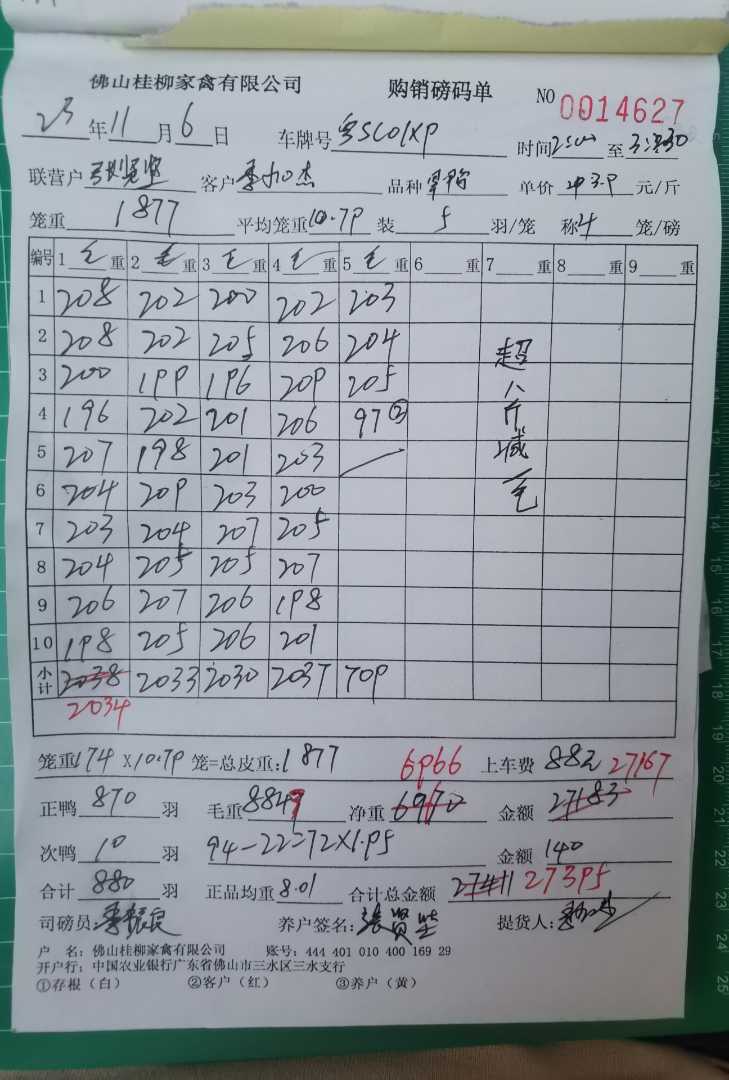 佛山桂柳家禽有限公司 购销磅码单 NO 0014627
23年11月6日 车牌号 时间 至
联营户 客户 杰 品种 单价 3.9 元/斤
笼重 1877 平均笼重10.79 装 5 羽/笼 称4 笼/磅
编号 1毛重 2毛重 3毛重 4毛重 5毛重 6 重 7 重 8 重 9 重
1 208 202 200 202 203
2 208 202 205 206 204
3 200 199 196 209 205
4 196 202 201 206 97②
5 207 198 201 203
6 204 209 203 200
7 203 204 207 205
8 204 205 205 207
9 206 207 206 198
10 198 205 206 201
超八斤减一毛
小计 2038 2033 2030 2037 709
2034
笼重174×10.79 笼=总皮重:1877 6966 上车费 882 27167
正鸭 870 羽 毛重 净重 金额 27183
次鸭 10 羽 94-22=72×1.95 金额 140
合计 880 羽 正品均重8.01 合计总金额 27411 27395
司磅员: 养户签名:张贤坚 提货人:
户 名:佛山桂柳家禽有限公司 账号:444 401 010 400 169 29
开户行:中国农业银行广东省佛山市三水区三水支行
①存根(白) ②客户(红) ③养户(黄)